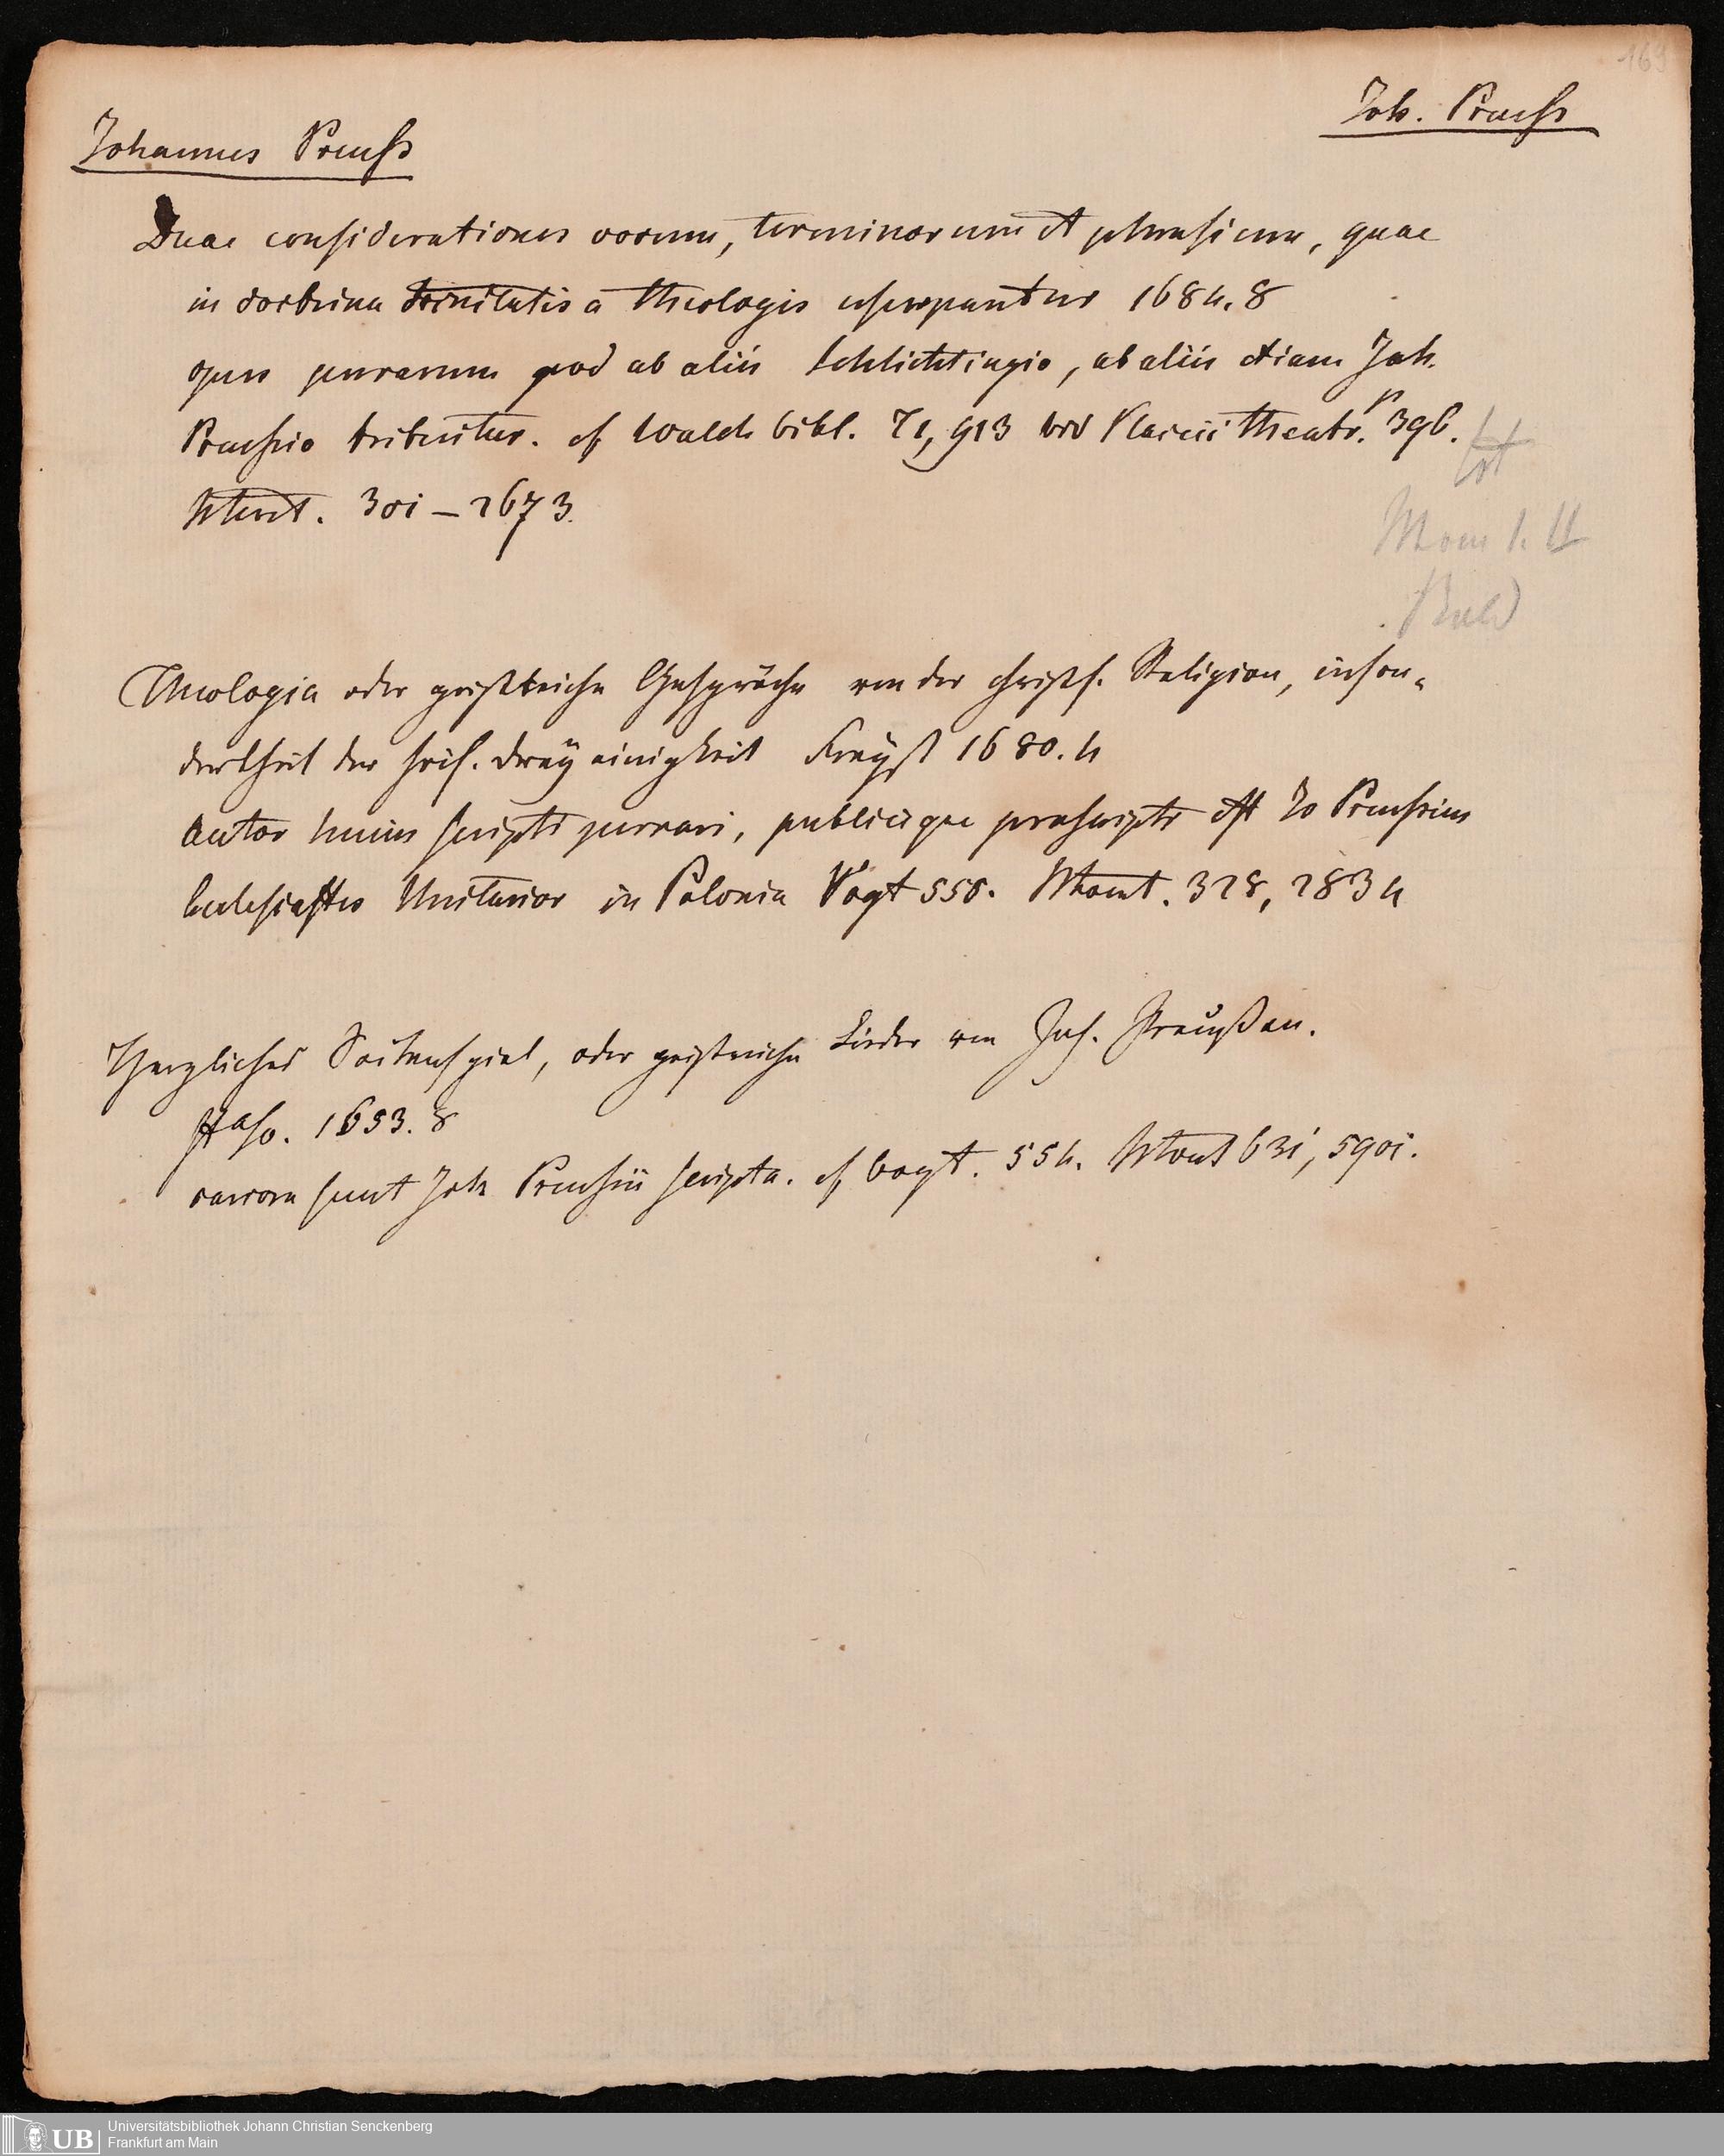 169
Joh. Preuss
Johannes Preuss
Duae considerationes vocum, terminorum et phrasium, quae
in doctrina trinitatis a theologis usurpantur 1684. 8
opus perrarum quod ab aliis Schlichtingio, ab aliis etiam Joh.
Preussio tribuitur. cf Walch bibl. T1, 913 Placcii theatr. p 396.
301 – 2673.
Mom 1. II
Theologia oder geistreiche Gespräche von der christl. Religion, inson-
derheit der heil. Dreÿeinigkeit Freÿst 1680. 4
Autor huius scripti perrari, publiceque proscripti est Jo Preussius
Ecclesiastes Unitarior in Polonia Vogt 555. 328, 2834
Herzliches Saitenspiel, oder geistreiche Lieder von Joh. Preußen.
1653. 8
rariora sunt Joh Preussii scripta. cf Vogt. 554. 631, 5901.
UB
Universitätsbibliothek Johann Christian Senckenberg
Frankfurt am Main